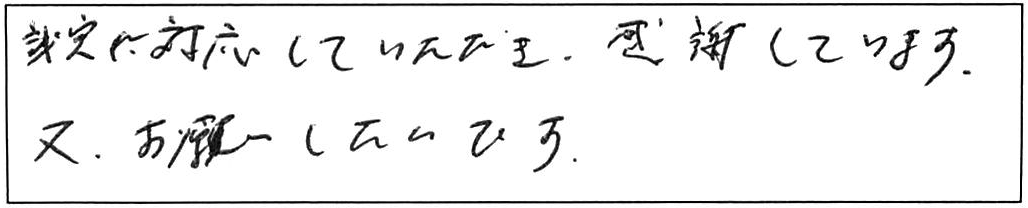 誠実に対応していただき、感謝しています。
又、お願いしたいです。